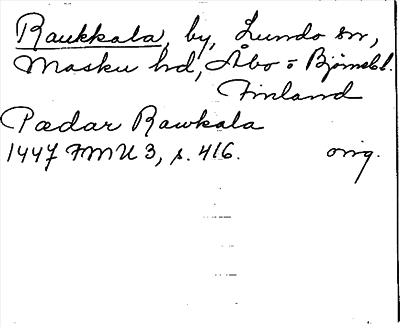 Raukkala, by, Lundo sn,
Masku hd, Åbo o Björnebl.
Finland
Pædar Rawkala
1447 FMU 3, s. 416. orig.